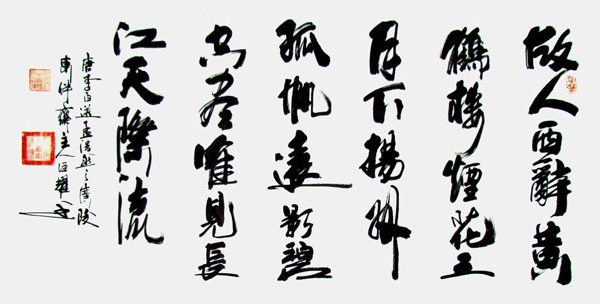 故人西辭黃
鶴樓煙花三
月下揚州
孤帆遠影碧
空盡唯見長
江天際流
唐李白送孟浩然之廣陵
東齋主人